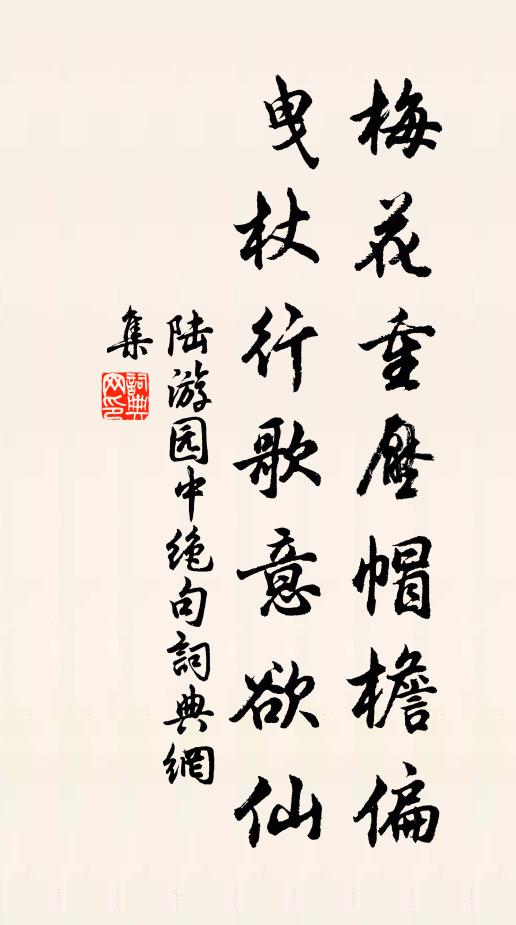 梅花重壓帽檐偏
曳杖行歌意欲仙
陆游园中绝句詞典網
集
詞典
网印